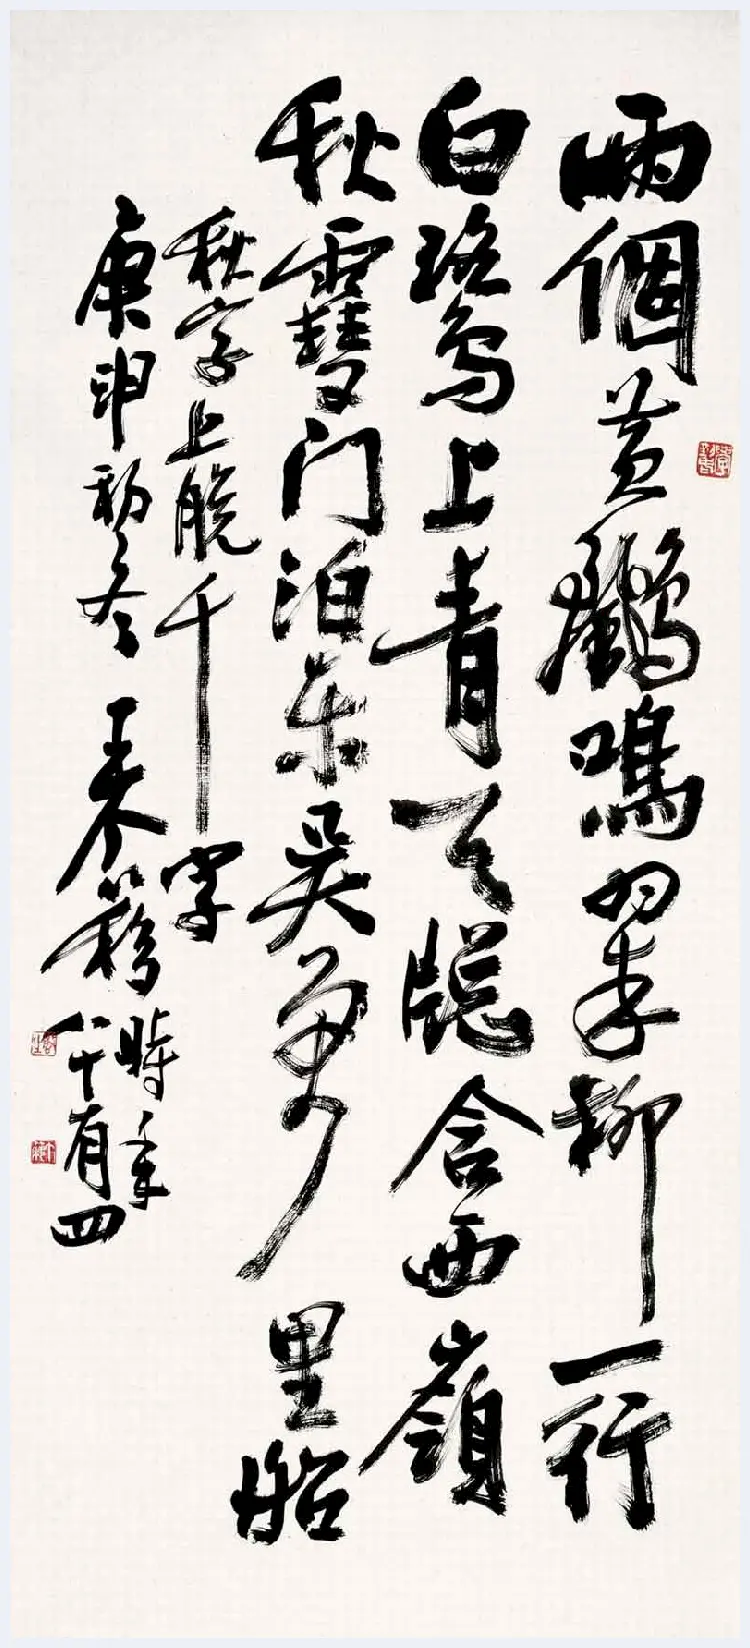 兩個黄鸝鳴翠柳一行
白鷺上青天牕含西嶺
秋雪门泊东吴萬里船
秋字上脱千字
庚申初冬王个簃時年
八十有四